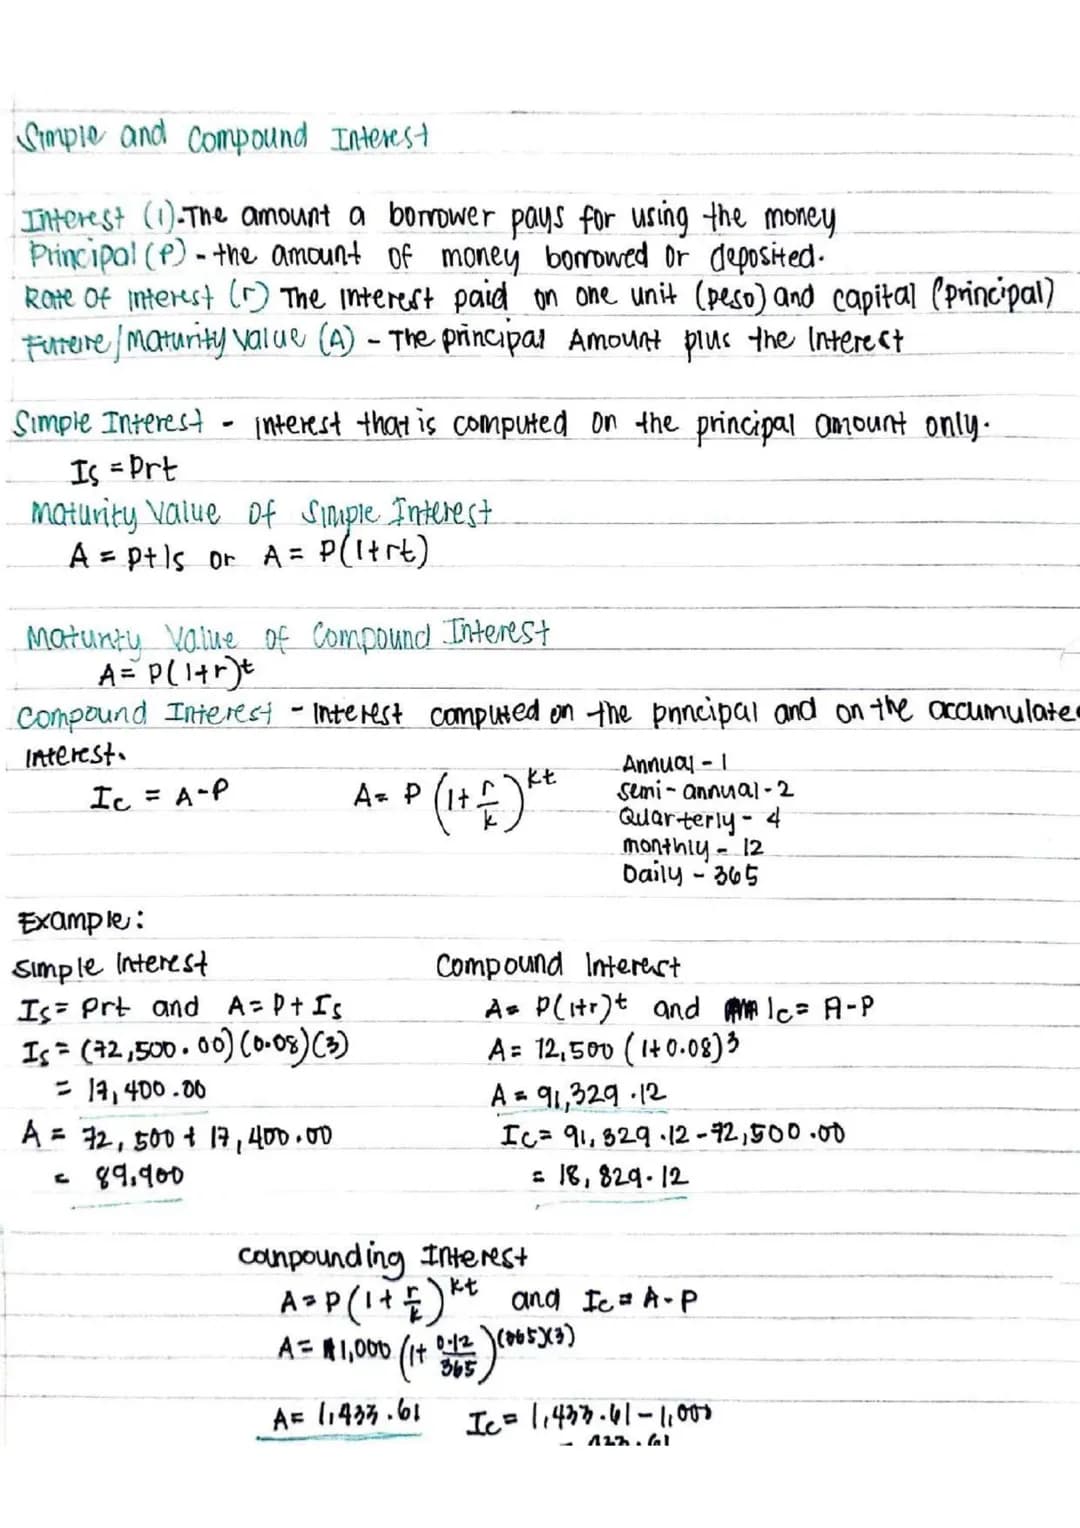 Simple and Compound Interest
Interest (I)-The amount a borrower pays for using the money
Principal (P) - the amount of money borrowed or deposited.
Rate Of interest (r) The interest paid on one unit (peso) and capital (principal)
Future/Maturity Value (A) - The principal Amount plus the Interest
Simple Interest - interest that is computed on the principal amount only.
Is = Prt
Maturity Value Of Simple Interest
A = P+Is or A = P(1+rt)
Maturity Value of Compound Interest
A = P(1+r)^t
Compound Interest - Interest computed on the principal and on the accumulated
Interest.
Ic = A-P A = P (1 + r/k)^kt
Annual - 1
Semi-annual - 2
Quarterly - 4
monthly - 12
Daily - 365
Example:
Simple Interest
Is = Prt and A = P + Is
Is = (72,500.00)(0.08)(3)
= 17,400.00
A = 72,500 + 17,400.00
= 89,900
Compound Interest
A = P(1+r)^t and Ic = A-P
A = 72,500 (1+0.08)^3
A = 91,329.12
Ic = 91,329.12 - 72,500.00
= 18,829.12
Conpounding Interest
A = P(1 + r/k)^kt and Ic = A-P
A = 1,000 (1+ 0.12/365)^(365)(3)
A = 1,433.61 Ic = 1,433.61 - 1,000